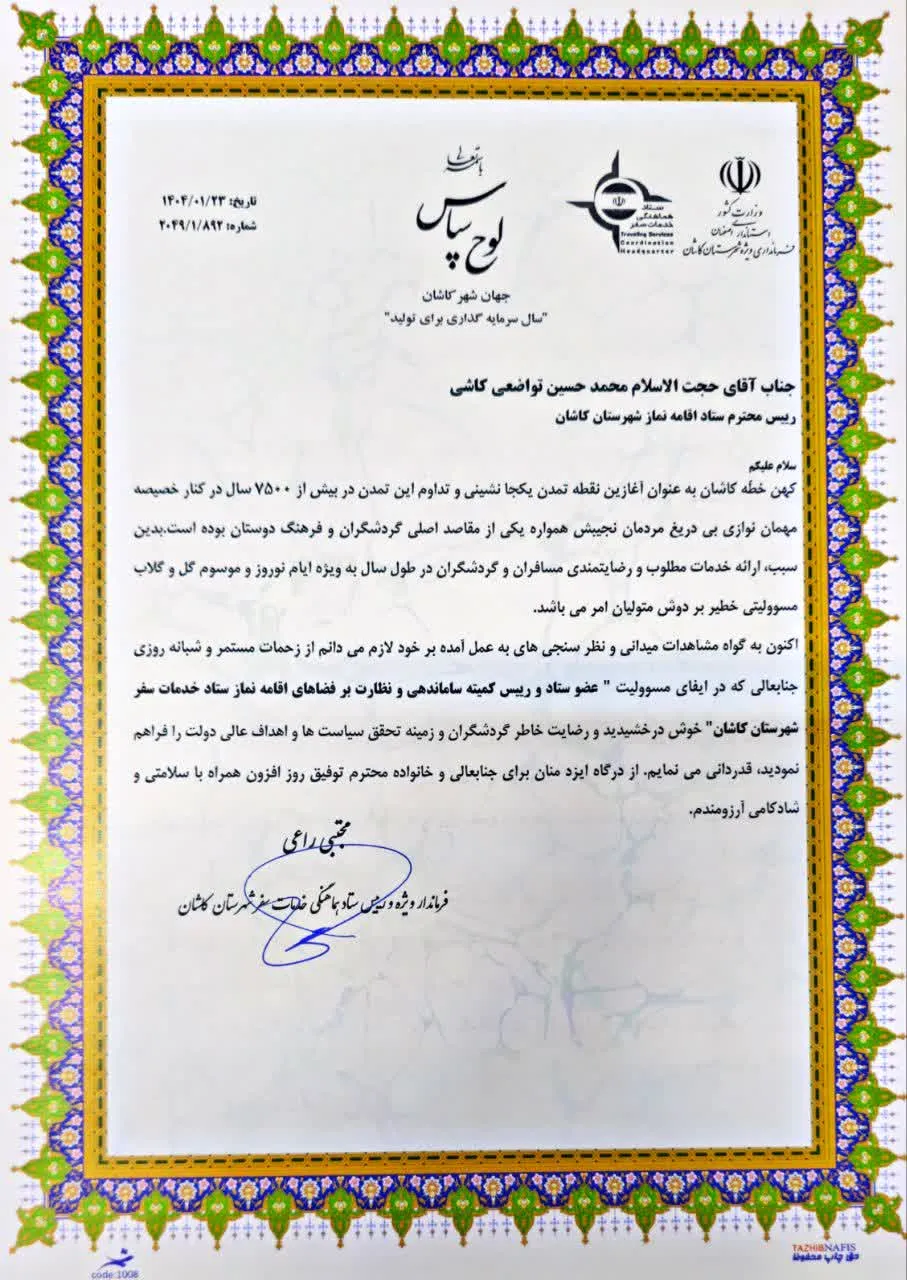 باسمه تعالی
لوح سپاس
جهان شهر کاشان
"سال سرمایه گذاری برای تولید"
وزارت کشور
استانداری اصفهان
فرمانداری ویژه شهرستان کاشان
ستاد
هماهنگی
خدمات سفر
Travelling Services
Coordination
Headquarter
تاریخ: ۱۴۰۴/۰۱/۲۳
شماره: ۲۰۴۹/۱/۸۹۲
جناب آقای حجت الاسلام محمد حسین تواضعی کاشی
رییس محترم ستاد اقامه نماز شهرستان کاشان
سلام علیکم
کهن خطّه کاشان به عنوان آغازین نقطه تمدن یکجا نشینی و تداوم این تمدن در بیش از ۷۵۰۰ سال در کنار خصیصه
مهمان نوازی بی دریغ مردمان نجیبش همواره یکی از مقاصد اصلی گردشگران و فرهنگ دوستان بوده است.بدین
سبب، ارائه خدمات مطلوب و رضایتمندی مسافران و گردشگران در طول سال به ویژه ایام نوروز و موسوم گل و گلاب
مسوولیتی خطیر بر دوش متولیان امر می باشد.
اکنون به گواه مشاهدات میدانی و نظر سنجی های به عمل آمده بر خود لازم می دانم از زحمات مستمر و شبانه روزی
جنابعالی که در ایفای مسوولیت " عضو ستاد و رییس کمیته ساماندهی و نظارت بر فضاهای اقامه نماز ستاد خدمات سفر
شهرستان کاشان" خوش درخشیدید و رضایت خاطر گردشگران و زمینه تحقق سیاست ها و اهداف عالی دولت را فراهم
نمودید، قدردانی می نمایم. از درگاه ایزد منان برای جنابعالی و خانواده محترم توفیق روز افزون همراه با سلامتی و
شادکامی آرزومندم.
مجتبی راعی
فرماندار ویژه و رییس ستاد هماهنگی خدمات سفر شهرستان کاشان
code:1008
TAZHIBNAFIS
حق چاپ محفوظ